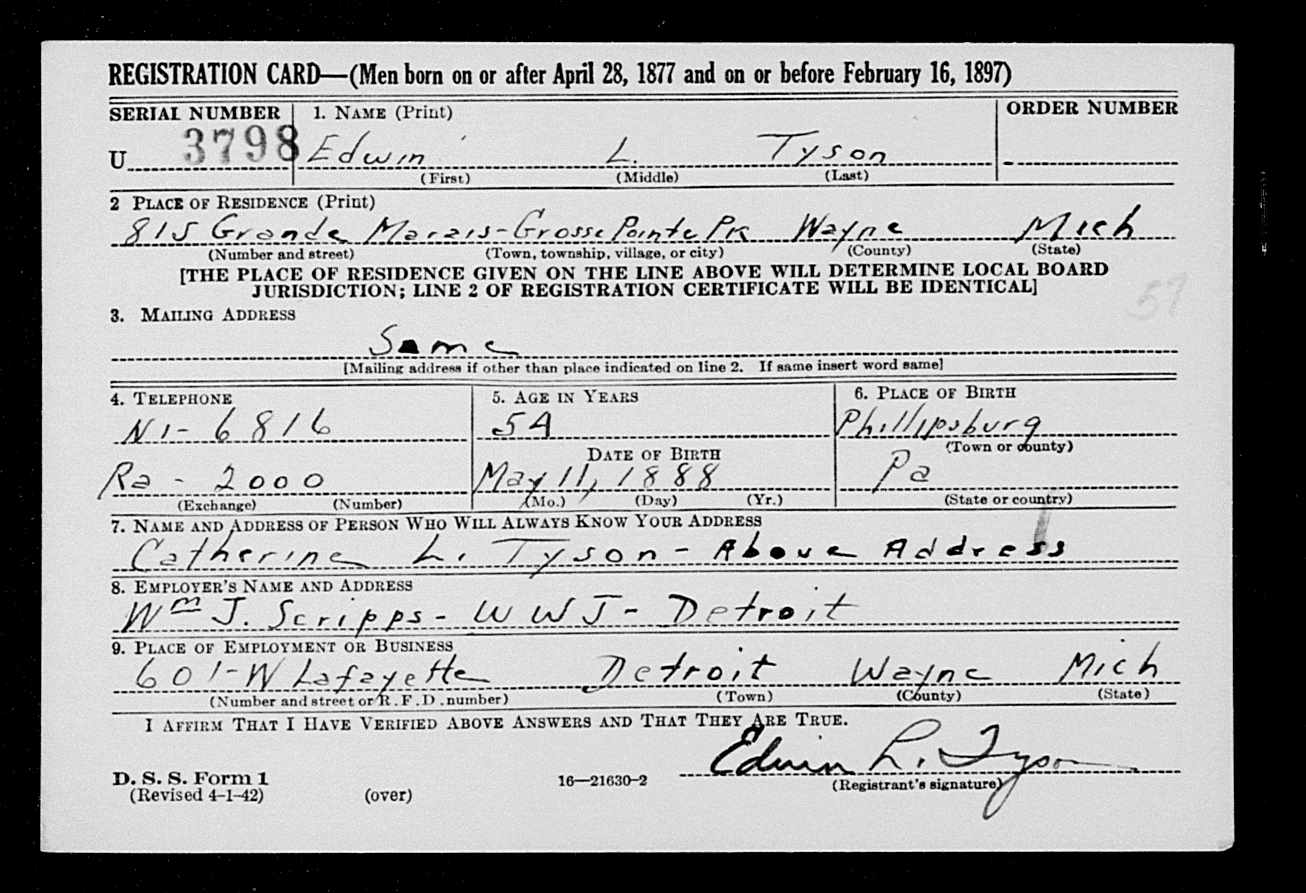 REGISTRATION CARD—(Men born on or after April 28, 1877 and on or before February 16, 1897)
SERIAL NUMBER 1. NAME (Print) ORDER NUMBER
U 3798 Edwin L. Tyson
(First) (Middle) (Last)
2 PLACE OF RESIDENCE (Print)
815 Grande Marais-Grosse Pointe Pk Wayne Mich
(Number and street) (Town, township, village, or city) (County) (State)
[THE PLACE OF RESIDENCE GIVEN ON THE LINE ABOVE WILL DETERMINE LOCAL BOARD
JURISDICTION; LINE 2 OF REGISTRATION CERTIFICATE WILL BE IDENTICAL]
57
3. MAILING ADDRESS
Same
[Mailing address if other than place indicated on line 2. If same insert word same]
4. TELEPHONE 5. AGE IN YEARS 6. PLACE OF BIRTH
NI- 6816 54 Phillipsburg
DATE OF BIRTH (Town or county)
Ra - 2000 May 11, 1888 Pa
(Exchange) (Number) (Mo.) (Day) (Yr.) (State or country)
7. NAME AND ADDRESS OF PERSON WHO WILL ALWAYS KNOW YOUR ADDRESS
Catherine L. Tyson - Above Address
8. EMPLOYER'S NAME AND ADDRESS
Wm J. Scripps - WWJ - Detroit
9. PLACE OF EMPLOYMENT OR BUSINESS
601-W Lafayette Detroit Wayne Mich
(Number and street or R. F. D. number) (Town) (County) (State)
I AFFIRM THAT I HAVE VERIFIED ABOVE ANSWERS AND THAT THEY ARE TRUE.
Edwin L. Tyson
D. S. S. Form 1 16—21630-2 (Registrant's signature)
(Revised 4-1-42) (over)